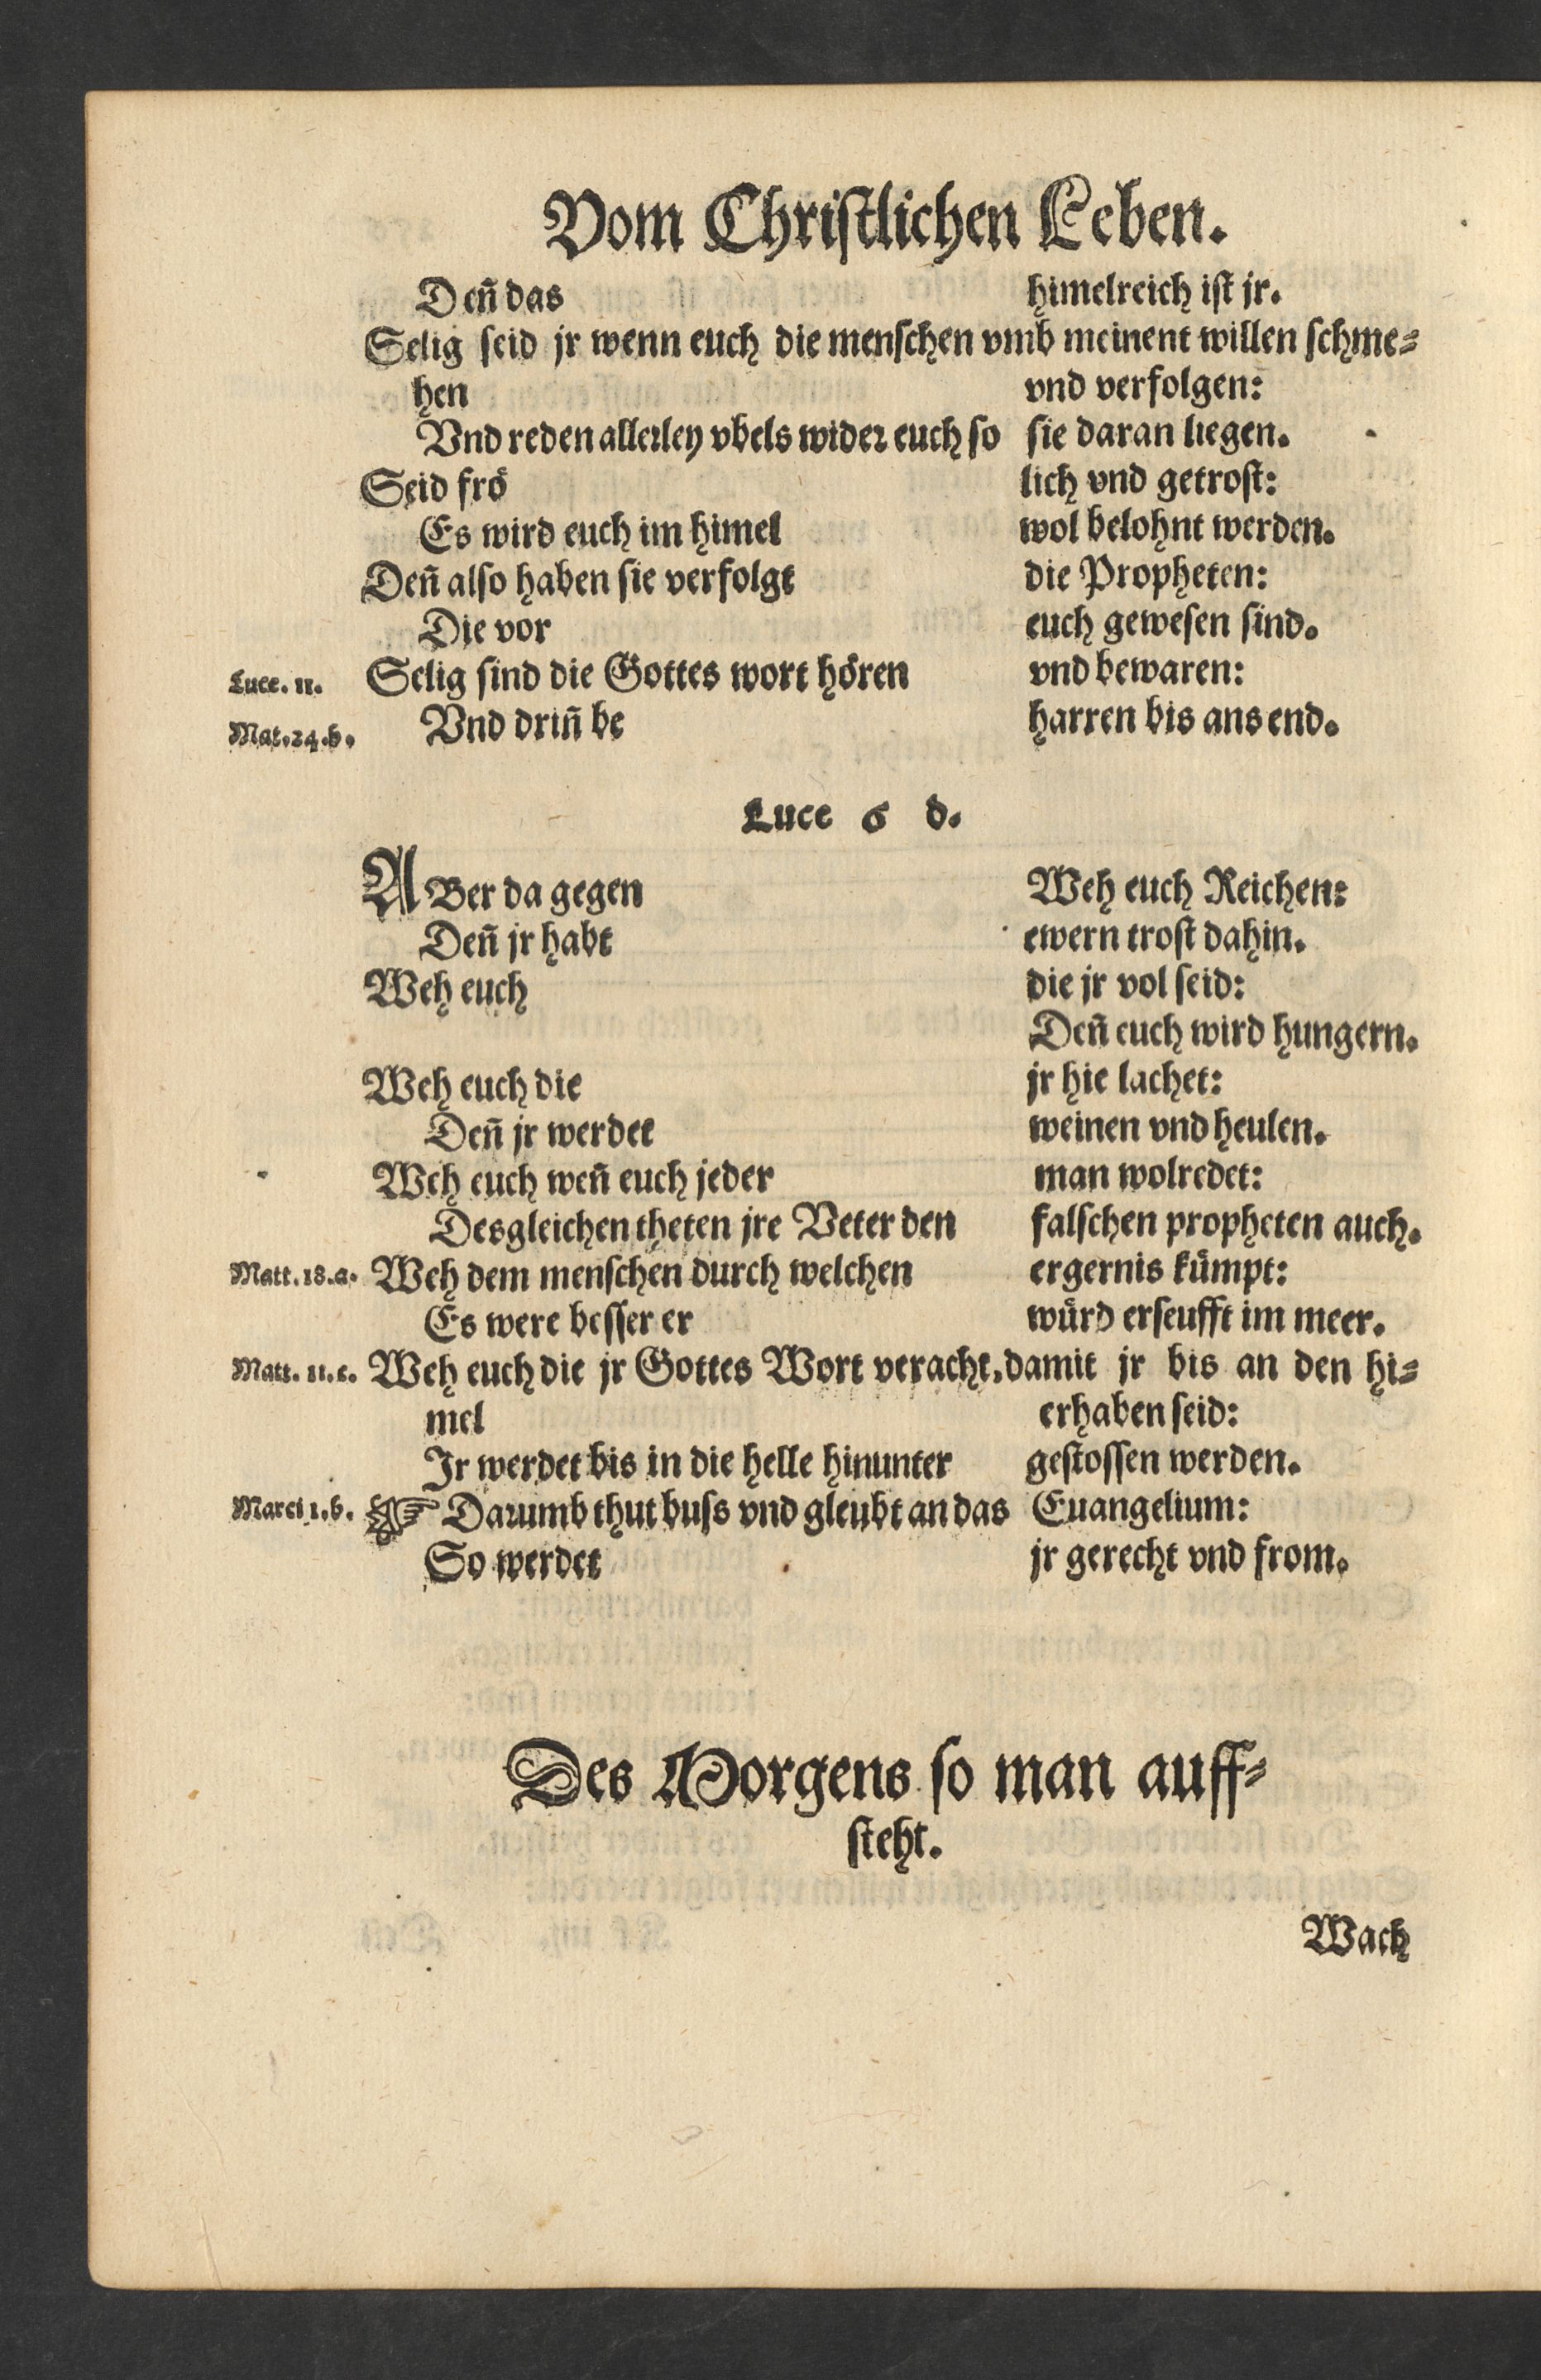 Vom Christlichen Leben.
Deñ das himelreich ist jr.
Selig seid jr wenn euch die menschen vmb meinent willen schme⸗
hen vnd verfolgen:
Vnd reden allerley vbels wider euch so sie daran liegen.
Seid frö lich vnd getrost:
Es wird euch im himel wol belohnt werden.
Deñ also haben sie verfolgt die Propheten:
Die vor euch gewesen sind.
Luce. 11. Selig sind die Gottes wort hören vnd bewaren:
Mat. 24. b. Vnd driñ be harren bis ans end.
Luce 6 d.
ABer da gegen Weh euch Reichen:
Deñ jr habt ewern trost dahin.
Weh euch die jr vol seid:
Deñ euch wird hungern.
Weh euch die jr hie lachet:
Deñ jr werdet weinen vnd heulen.
Weh euch weñ euch jeder man wolredet:
Desgleichen theten jre Veter den falschen propheten auch.
Matt. 18. a. Weh dem menschen durch welchen ergernis kümpt:
Es were besser er würd erseufft im meer.
Matt. 11. c. Weh euch die jr Gottes Wort veracht, damit jr bis an den hi⸗
mel erhaben seid:
Ir werdet bis in die helle hinunter gestossen werden.
Marci 1. b. ☞ Darumb thut buss vnd gleubt an das Euangelium:
So werdet jr gerecht vnd from.
Des Morgens so man auff⸗
steht.
Wach